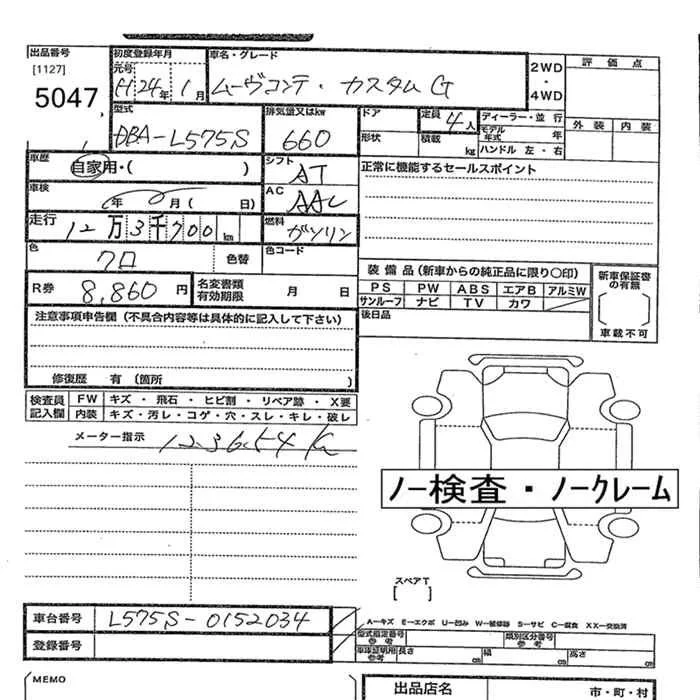 出品番号
[1127]
5047
初度登録年月
元号
H24年 1月
車名・グレード
ムーヴコンテ・カスタムG
2WD
・
4WD
評価点
外装 内装
型式
DBA-L575S
排気量又はkw
660
ドア
形状
定員
4人
積載
kg
ディーラー・並行
モデル年式 年
ハンドル 左・右
車歴
自家用・( )
シフト
AT
正常に機能するセールスポイント
車検
年 月( 日)
AC
AAC
走行
12万3千700km
燃料
ガソリン
色
クロ
色替
色コード
R券
8,860円
名変書類
有効期限
月 日
装備品(新車からの純正品に限り○印)
PS PW ABS エアB アルミW
サンルーフ ナビ TV カワ
後日品
新車保証書
の有無
車載不可
注意事項申告欄(不具合内容等は具体的に記入して下さい)
修復歴 有(箇所 )
検査員
記入欄
FW キズ・飛石・ヒビ割・リペア跡・X要
内装 キズ・汚レ・コゲ・穴・スレ・キレ・破レ
メーター指示 123654K
ノー検査・ノークレーム
スペアT
[ ]
車台番号 L575S-0152034
登録番号
A-キズ E-エクボ U-凹み W-補修跡 S-サビ C-腐食 XX-交換済
型式指定番号
参考
類別区分番号
参考
車庫証明用
参考
長さ cm 幅 cm 高さ cm
MEMO
出品店名
市・町・村